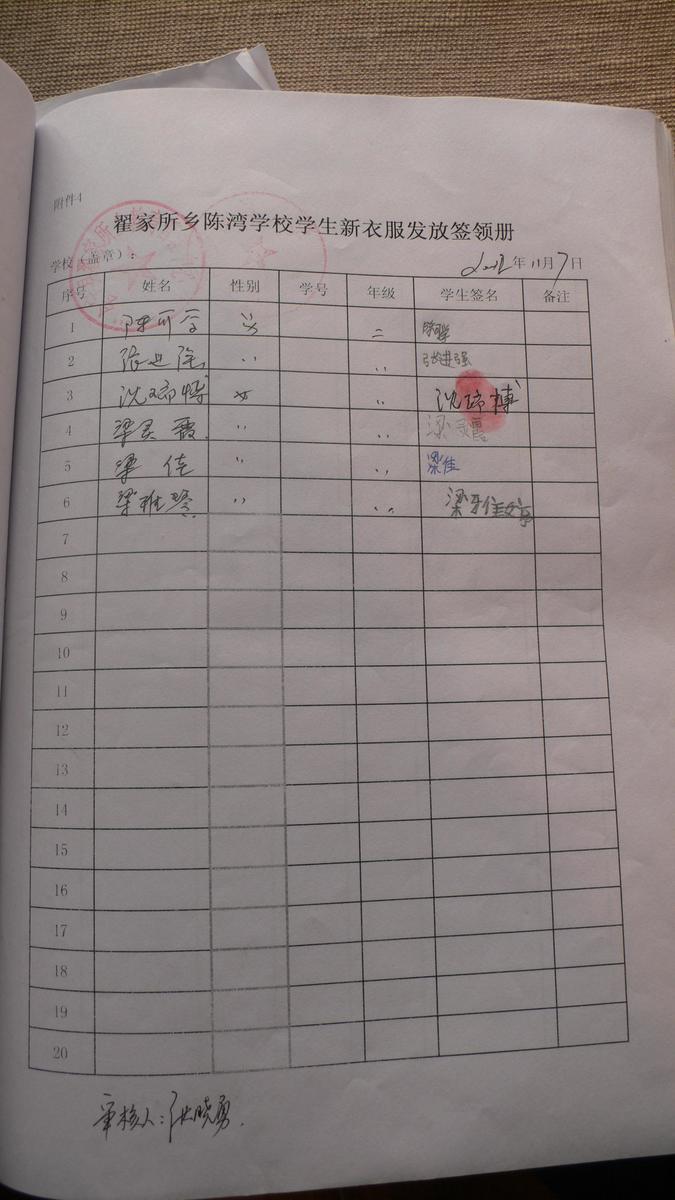 附件4
翟家所乡陈湾学校学生新衣服发放签领册
学校（盖章）： 2012年11月7日
序号 姓名 性别 学号 年级 学生签名 备注
1 二
2 〃 〃 张进强
3 沈琦博 〃 沈琦博
4 梁灵霞 〃 〃 梁灵霞
5 梁佳 〃 〃 梁佳
6 〃 〃
7
8
9
10
11
12
13
14
15
16
17
18
19
20
审核人：张晓勇